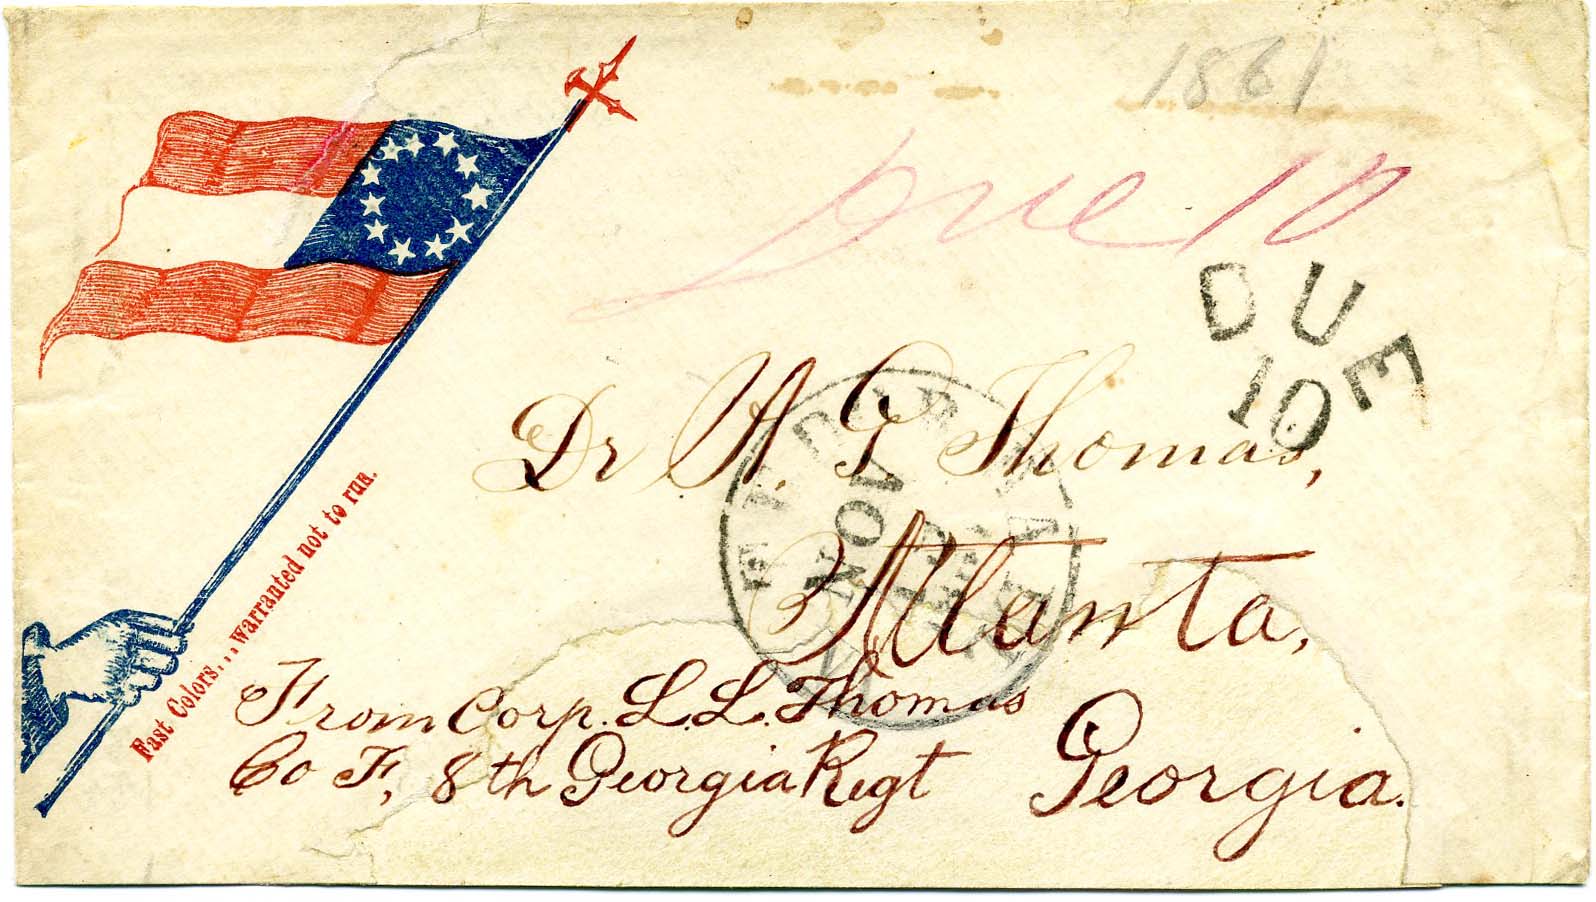 1861
Due 10
DUE
10
Dr W. G. Thomas,
Atlanta,
Georgia.
From Corp. L. L. Thomas
Co F, 8th Georgia Regt
Fast Colors...warranted not to run.
NOV